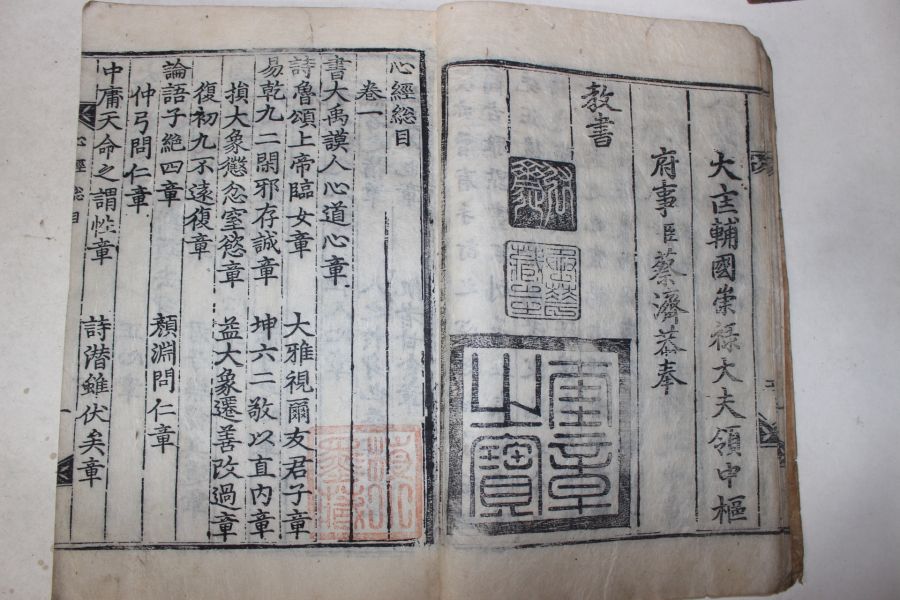 大匡輔國崇祿大夫領中樞
府事臣蔡濟恭奉
教書
奎章之寶
心經総目
卷一
書大禹謨人心道心章
詩魯頌上帝臨女章 大雅視爾友君子章
易乾九二閑邪存誠章 坤六二敬以直內章
損大象懲忿窒慾章 益大象遷善改過章
復初九不遠復章
論語子絶四章 顏淵問仁章
仲弓問仁章
中庸天命之謂性章 詩潛雖伏矣章
心經 総目 一